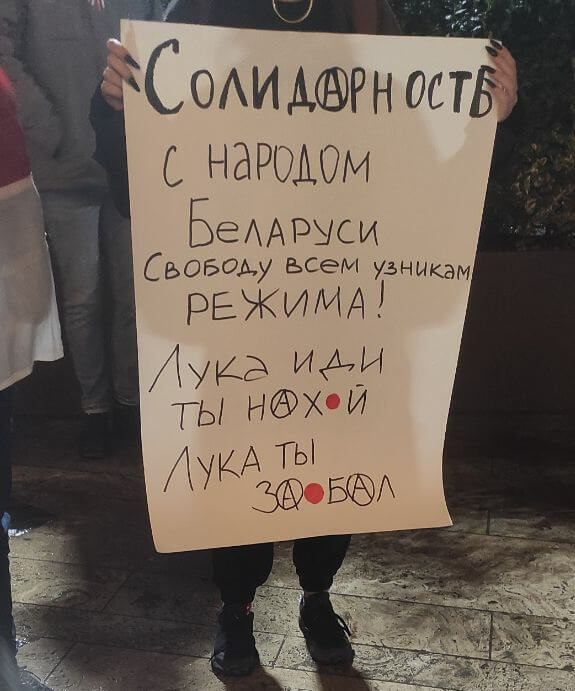 СОЛИДАРНОСТЬ
С НАРОДОМ
БЕЛАРУСИ
СВОБОДУ ВСЕМ УЗНИКАМ
РЕЖИМА!
ЛУКА ИДИ
ТЫ НАХ●Й
ЛУКА ТЫ
ЗА●БАЛ